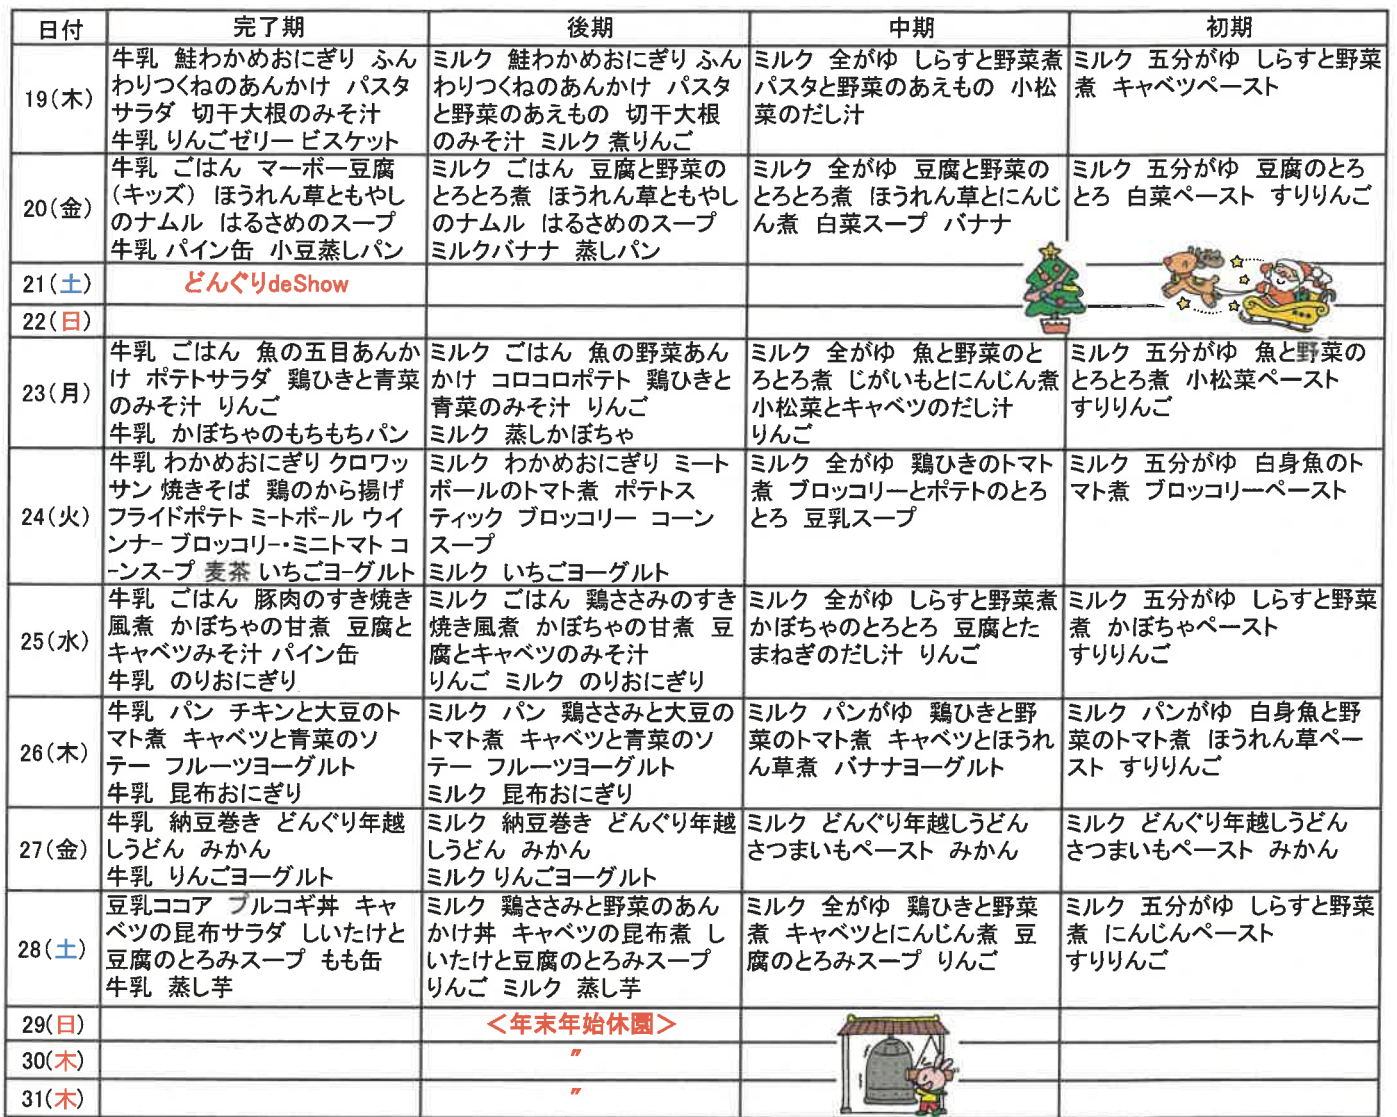 日付 完了期 後期 中期 初期
19(木)
牛乳 鮭わかめおにぎり ふん
わりつくねのあんかけ パスタ
サラダ 切干大根のみそ汁
牛乳 りんごゼリー ビスケット
ミルク 鮭わかめおにぎり ふん
わりつくねのあんかけ パスタ
と野菜のあえもの 切干大根
のみそ汁 ミルク 煮りんご
ミルク 全がゆ しらすと野菜煮
パスタと野菜のあえもの 小松
菜のだし汁
ミルク 五分がゆ しらすと野菜
煮 キャベツペースト
20(金)
牛乳 ごはん マーボー豆腐
(キッズ) ほうれん草ともやし
のナムル はるさめのスープ
牛乳 パイン缶 小豆蒸しパン
ミルク ごはん 豆腐と野菜の
とろとろ煮 ほうれん草ともやし
のナムル はるさめのスープ
ミルクバナナ 蒸しパン
ミルク 全がゆ 豆腐と野菜の
とろとろ煮 ほうれん草とにんじ
ん煮 白菜スープ バナナ
ミルク 五分がゆ 豆腐のとろ
とろ 白菜ペースト すりりんご
21(土) どんぐりdeShow
22(日)
23(月)
牛乳 ごはん 魚の五目あんか
け ポテトサラダ 鶏ひきと青菜
のみそ汁 りんご
牛乳 かぼちゃのもちもちパン
ミルク ごはん 魚の野菜あん
かけ コロコロポテト 鶏ひきと
青菜のみそ汁 りんご
ミルク 蒸しかぼちゃ
ミルク 全がゆ 魚と野菜のと
ろとろ煮 じがいもとにんじん煮
小松菜とキャベツのだし汁
りんご
ミルク 五分がゆ 魚と野菜の
とろとろ煮 小松菜ペースト
すりりんご
24(火)
牛乳 わかめおにぎり クロワッ
サン 焼きそば 鶏のから揚げ
フライドポテト ミートボール ウイ
ンナー ブロッコリー・ミニトマト コ
ーンスープ 麦茶 いちごヨーグルト
ミルク わかめおにぎり ミート
ボールのトマト煮 ポテトス
ティック ブロッコリー コーン
スープ
ミルク いちごヨーグルト
ミルク 全がゆ 鶏ひきのトマト
煮 ブロッコリーとポテトのとろ
とろ 豆乳スープ
ミルク 五分がゆ 白身魚のト
マト煮 ブロッコリーペースト
25(水)
牛乳 ごはん 豚肉のすき焼き
風煮 かぼちゃの甘煮 豆腐と
キャベツみそ汁 パイン缶
牛乳 のりおにぎり
ミルク ごはん 鶏ささみのすき
焼き風煮 かぼちゃの甘煮 豆
腐とキャベツのみそ汁
りんご ミルク のりおにぎり
ミルク 全がゆ しらすと野菜煮
かぼちゃのとろとろ 豆腐とた
まねぎのだし汁 りんご
ミルク 五分がゆ しらすと野菜
煮 かぼちゃペースト
すりりんご
26(木)
牛乳 パン チキンと大豆のト
マト煮 キャベツと青菜のソ
テー フルーツヨーグルト
牛乳 昆布おにぎり
ミルク パン 鶏ささみと大豆の
トマト煮 キャベツと青菜のソ
テー フルーツヨーグルト
ミルク 昆布おにぎり
ミルク パンがゆ 鶏ひきと野
菜のトマト煮 キャベツとほうれ
ん草煮 バナナヨーグルト
ミルク パンがゆ 白身魚と野
菜のトマト煮 ほうれん草ペー
スト すりりんご
27(金)
牛乳 納豆巻き どんぐり年越
しうどん みかん
牛乳 りんごヨーグルト
ミルク 納豆巻き どんぐり年越
しうどん みかん
ミルク りんごヨーグルト
ミルク どんぐり年越しうどん
さつまいもペースト みかん
ミルク どんぐり年越しうどん
さつまいもペースト みかん
28(土)
豆乳ココア プルコギ丼 キャ
ベツの昆布サラダ しいたけと
豆腐のとろみスープ もも缶
牛乳 蒸し芋
ミルク 鶏ささみと野菜のあん
かけ丼 キャベツの昆布煮 し
いたけと豆腐のとろみスープ
りんご ミルク 蒸し芋
ミルク 全がゆ 鶏ひきと野菜
煮 キャベツとにんじん煮 豆
腐のとろみスープ りんご
ミルク 五分がゆ しらすと野菜
煮 にんじんペースト
すりりんご
29(日) <年末年始休園>
30(木) 〃
31(木) 〃